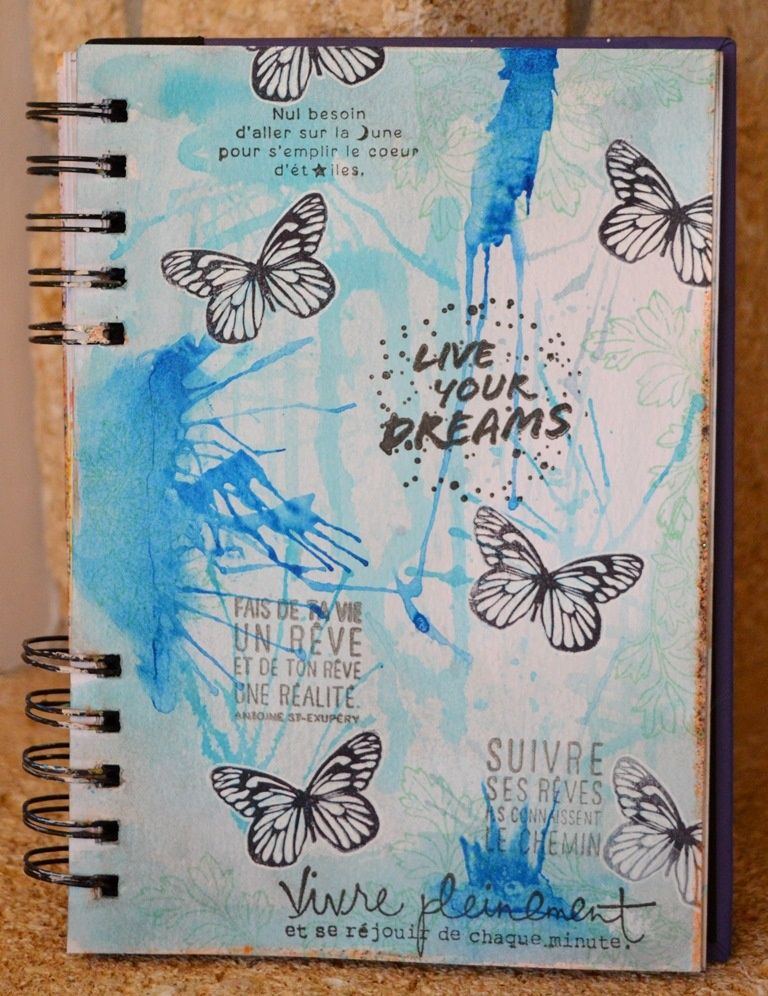 Nul besoin
d'aller sur la lune
pour s'emplir le coeur
d'étoiles.
LIVE
YOUR
DREAMS
FAIS DE TA VIE
UN RÊVE
ET DE TON RÊVE
UNE RÉALITÉ.
ANTOINE ST-EXUPÉRY
SUIVRE
SES RÊVES
ILS CONNAISSENT
LE CHEMIN
Vivre pleinement
et se réjouir de chaque minute.